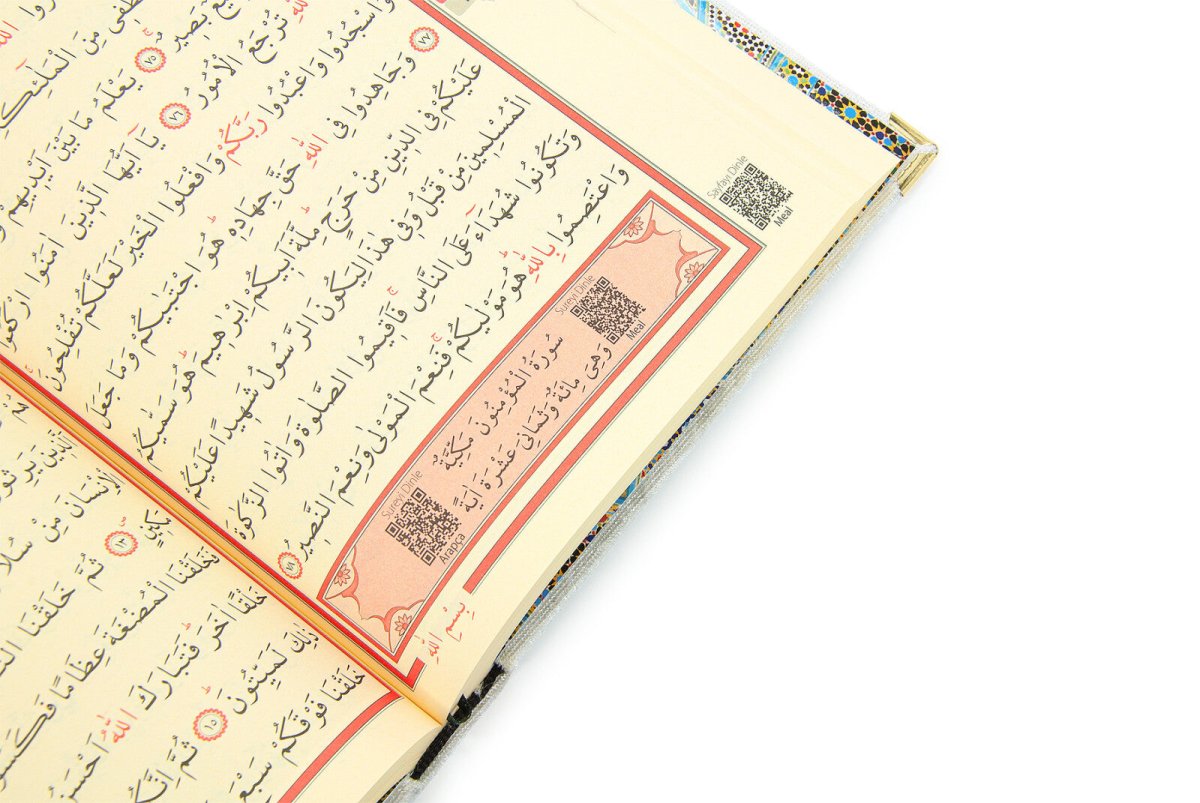 مِنَ الْمَلٰٓئِكَ
بَصٖيرٌ ٧٥ يَعْلَمُ مَا بَيْنَ اَيْدٖيهِمْ
تُرْجَعُ الْاُمُورُ ٧٦ يَٓا اَيُّهَا الَّذٖينَ اٰمَنُوا ارْكَعُوا
وَاسْجُدُوا وَاعْبُدُوا رَبَّكُمْ وَافْعَلُوا الْخَيْرَ لَعَلَّكُمْ تُفْلِحُونَ
٧٧ وَجَاهِدُوا فِي اللّٰهِ حَقَّ جِهَادِهٖ هُوَ اجْتَبٰيكُمْ وَمَا جَعَلَ
عَلَيْكُمْ فِي الدّٖينِ مِنْ حَرَجٍ مِلَّةَ اَبٖيكُمْ اِبْرٰهٖيمَ هُوَ سَمّٰيكُمُ
الْمُسْلِمٖينَ مِنْ قَبْلُ وَفٖي هٰذَا لِيَكُونَ الرَّسُولُ شَهٖيدًا عَلَيْكُمْ
وَتَكُونُوا شُهَدَٓاءَ عَلَى النَّاسِ فَاَقٖيمُوا الصَّلٰوةَ وَاٰتُوا الزَّكٰوةَ
وَاعْتَصِمُوا بِاللّٰهِ هُوَ مَوْلٰيكُمْ فَنِعْمَ الْمَوْلٰى وَنِعْمَ النَّصٖيرُ ٧٨
Sayfayı Dinle
Meal
Sureyi Dinle
Meal
سُورَةُ الْمُؤْمِنُونَ مَكِّيَّةٌ
وَهِيَ مِائَةٌ وَثَمَانِيَ عَشْرَةَ اٰيَةً
Sureyi Dinle
Arapça
بِسْمِ اللّٰهِ
الْاِنْسَانَ مِنْ
مَكٖينٍ ١٣ ثُمَّ خَلَقْنَا
فَخَلَقْنَا الْمُضْغَةَ عِظَامًا فَكَسَوْ
خَلْقًا اٰخَرَ فَتَبَارَكَ اللّٰهُ اَحْسَنُ
ذٰلِكَ لَمَيِّتُونَ ١٥ ثُمَّ اِنَّكُمْ
خَلَقْنَا فَوْقَكُمْ سَبْعَ